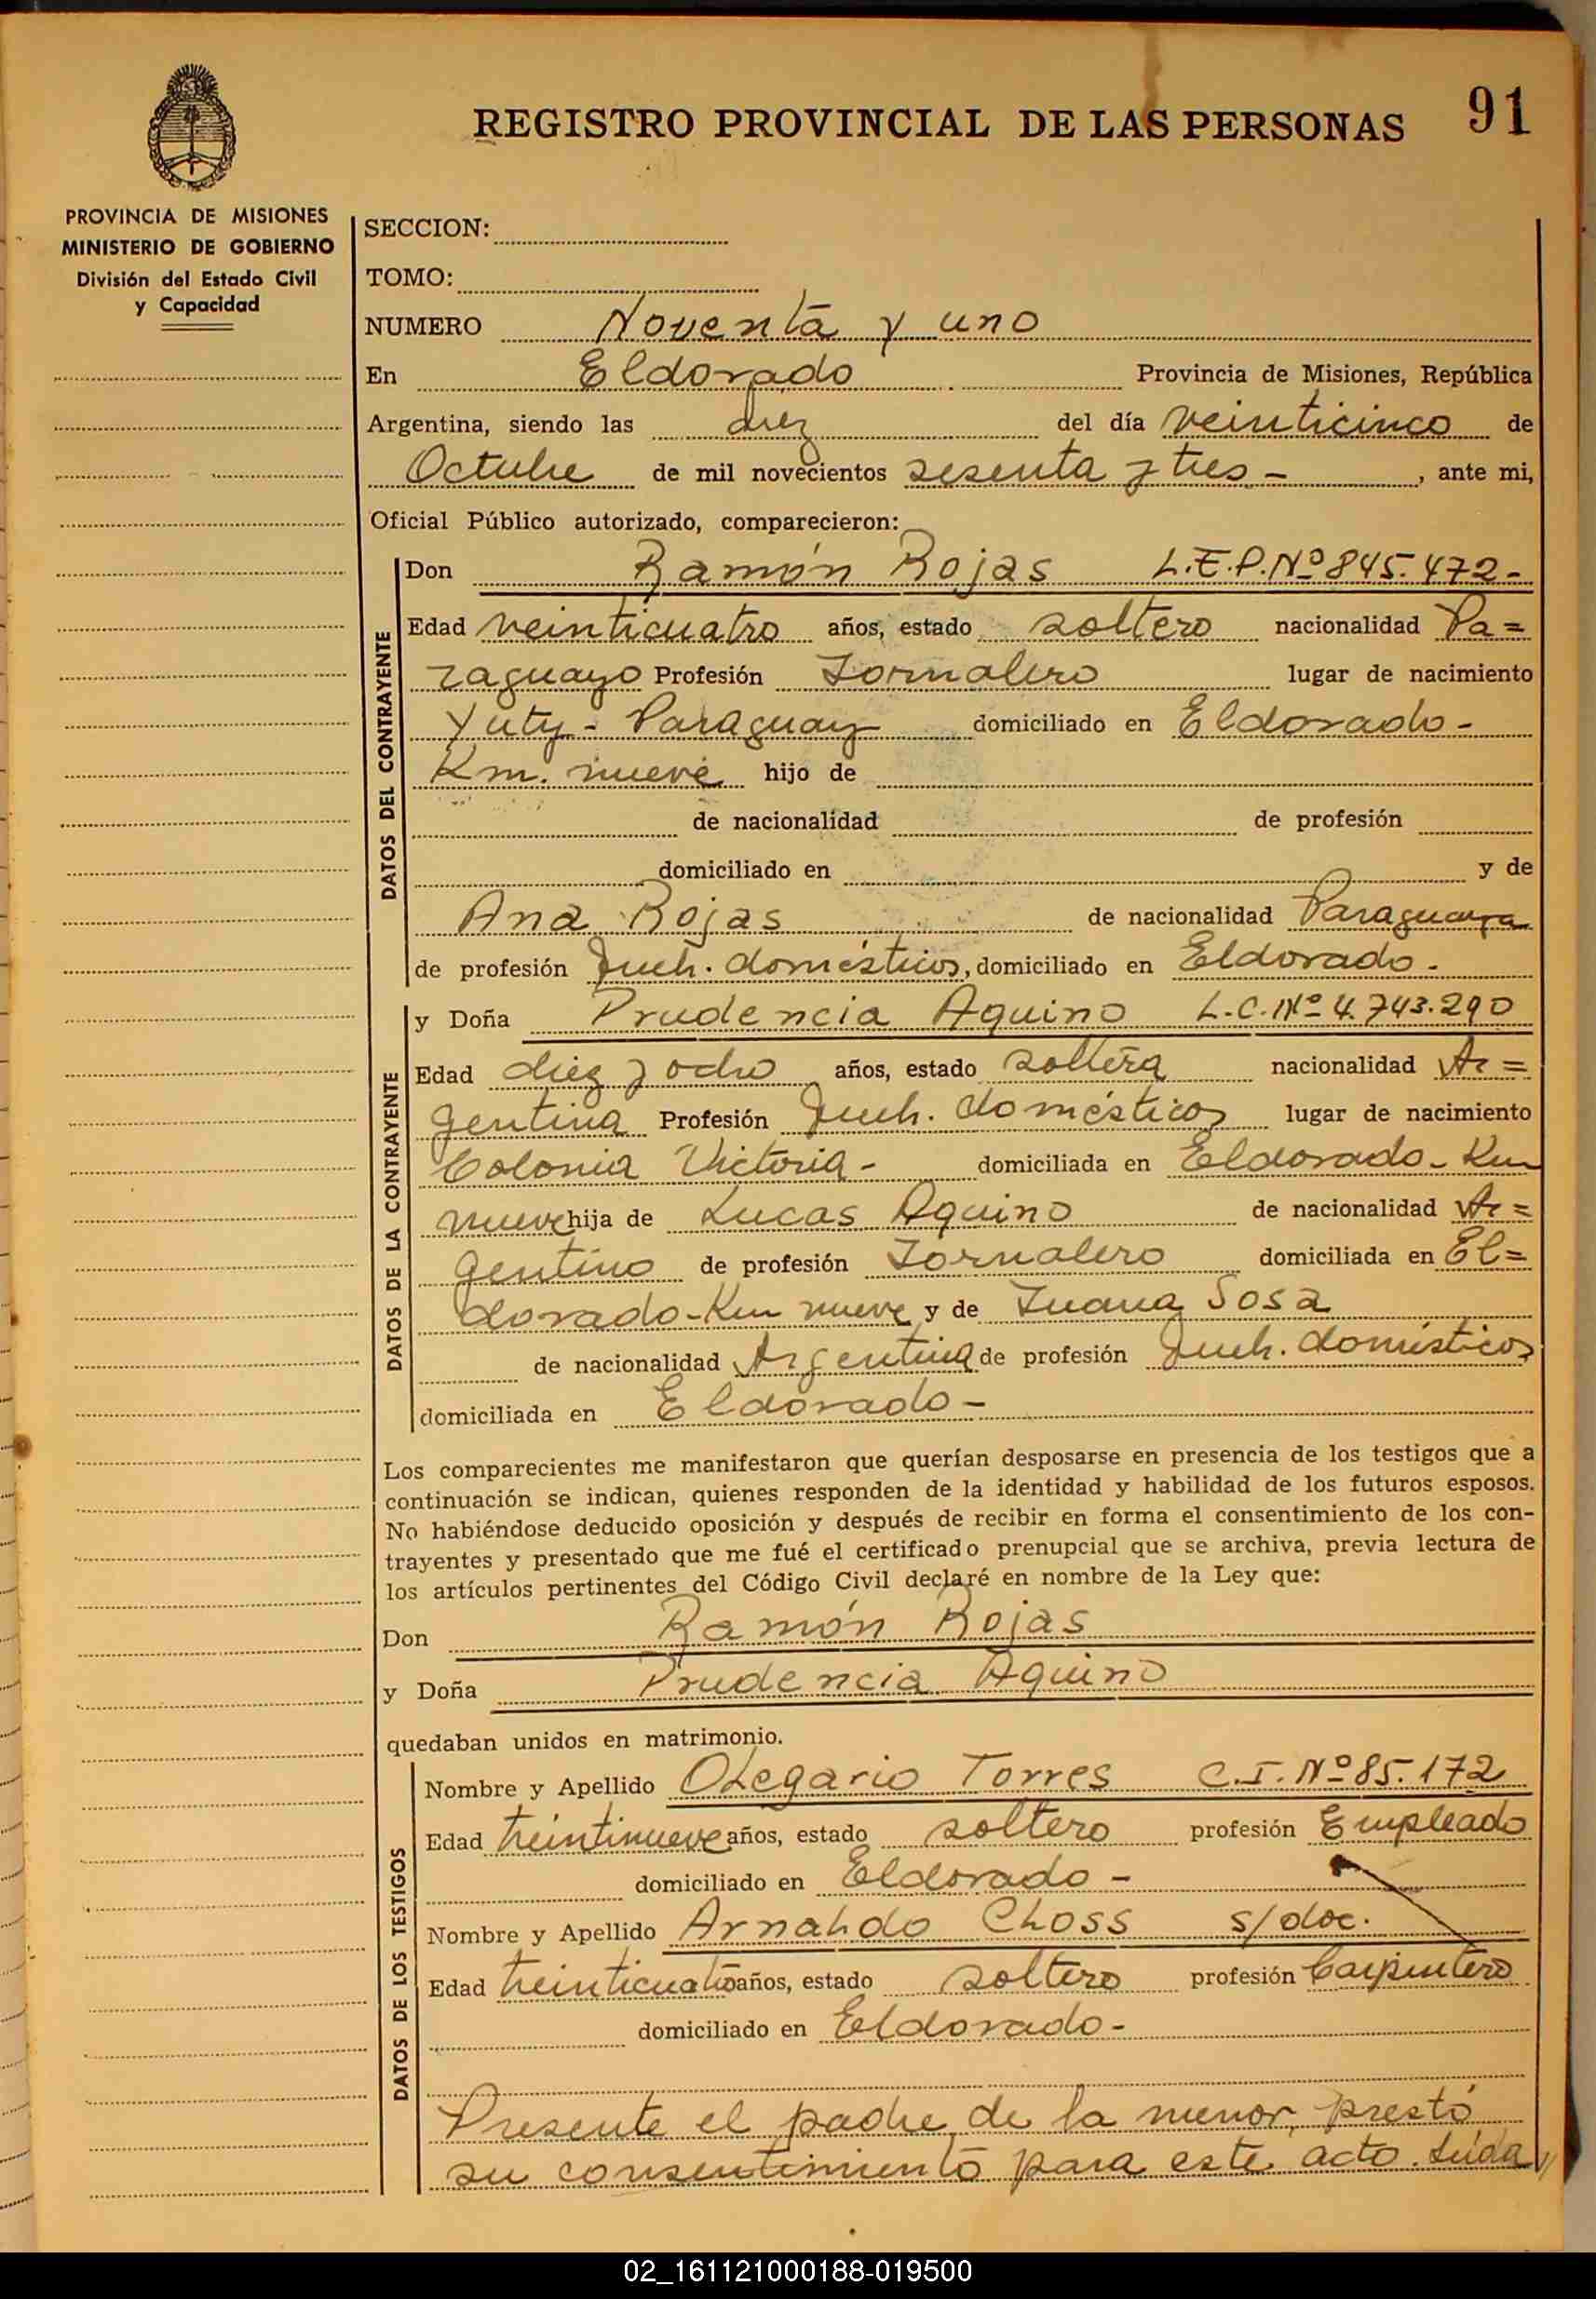 REGISTRO PROVINCIAL DE LAS PERSONAS 91
PROVINCIA DE MISIONES
MINISTERIO DE GOBIERNO
División del Estado Civil
y Capacidad
SECCION:
TOMO:
NUMERO Noventa y uno
En Eldorado Provincia de Misiones, República
Argentina, siendo las diez del día veinticinco de
Octubre de mil novecientos sesenta y tres - , ante mi,
Oficial Público autorizado, comparecieron:
DATOS DEL CONTRAYENTE
Don Ramón Rojas L.E.P.Nº 845.472-
Edad veinticuatro años, estado soltero nacionalidad Pa=
raguayo Profesión Jornalero lugar de nacimiento
Yuty - Paraguay domiciliado en Eldorado -
Km. nueve hijo de
de nacionalidad de profesión
domiciliado en y de
Ana Rojas de nacionalidad Paraguaya
de profesión Queh. domésticos, domiciliado en Eldorado.
DATOS DE LA CONTRAYENTE
y Doña Prudencia Aquino L.C.Nº 4.743.290
Edad diez y ocho años, estado soltera nacionalidad Ar=
gentina Profesión Queh. domésticos lugar de nacimiento
Colonia Victoria - domiciliada en Eldorado - Km
nueve hija de Lucas Aquino de nacionalidad Ar=
gentino de profesión Jornalero domiciliada en El=
dorado - Km nueve y de Juana Sosa
de nacionalidad Argentina de profesión Queh. domésticos
domiciliada en Eldorado -
Los comparecientes me manifestaron que querían desposarse en presencia de los testigos que a
continuación se indican, quienes responden de la identidad y habilidad de los futuros esposos.
No habiéndose deducido oposición y después de recibir en forma el consentimiento de los con-
trayentes y presentado que me fué el certificado prenupcial que se archiva, previa lectura de
los artículos pertinentes del Código Civil declaré en nombre de la Ley que:
Don Ramón Rojas
y Doña Prudencia Aquino
quedaban unidos en matrimonio.
DATOS DE LOS TESTIGOS
Nombre y Apellido Olegario Torres C.I. Nº 85.172
Edad treintinueve años, estado soltero profesión Empleado
domiciliado en Eldorado -
Nombre y Apellido Arnaldo Closs s/doc.
Edad treinticuatro años, estado soltero profesión Carpintero
domiciliado en Eldorado -
Presente el padre de la menor, prestó
su consentimiento para este acto. Leída //
02_161121000188-019500